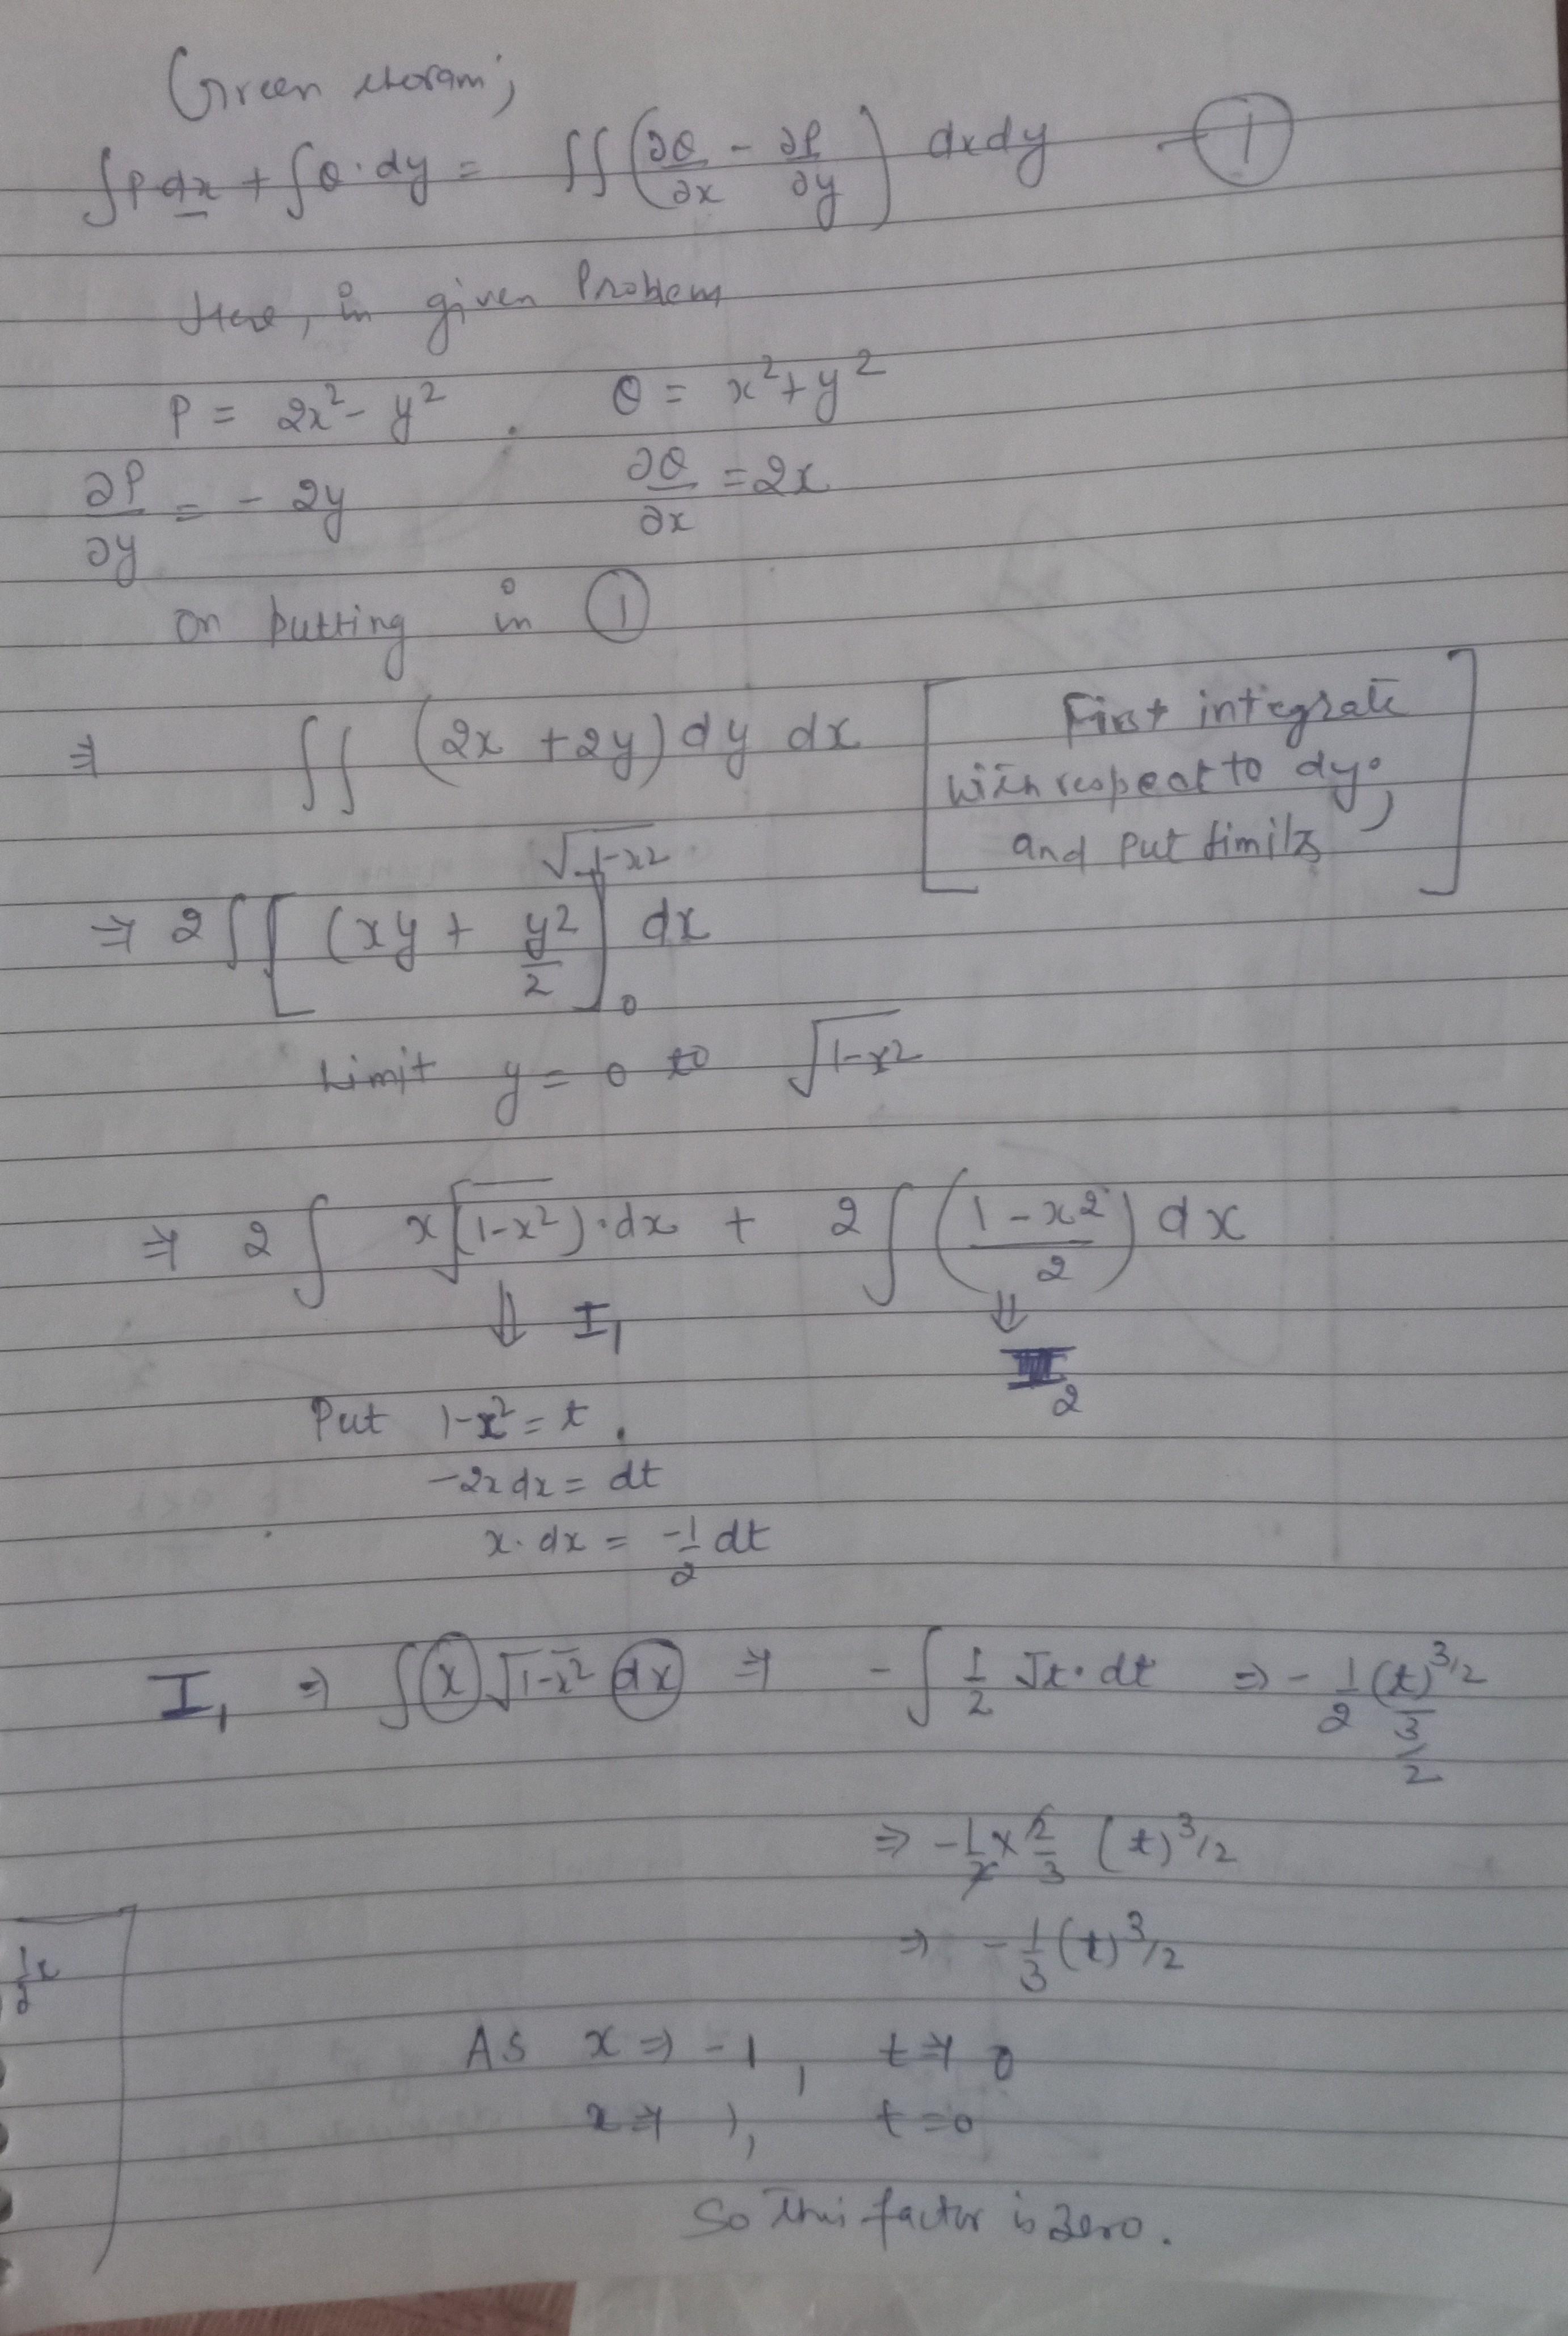 Green thoram;
∫P dx + ∫Q·dy = ∬(∂Q/∂x - ∂P/∂y) dxdy — ①
Here, in given Problem
P = 2x² - y², Q = x² + y²
∂P/∂y = - 2y ∂Q/∂x = 2x
on putting in ①
⇒ ∬ (2x + 2y) dy dx [First integrate
with respect to dy,
and put limits]
⇒ 2∫[(xy + y²/2]₀^√(1-x²) dx
Limit y = 0 to √(1-x²)
⇒ 2∫ x√(1-x²)·dx + 2∫ ((1-x²)/2) dx
⇓ I₁ ⇓
I₂
Put 1-x² = t,
-2x dx = dt
x·dx = -1/2 dt
I₁ ⇒ ∫x√(1-x²) dx ⇒ -∫ 1/2 √t·dt ⇒ - 1/2 (t)^3/2 / (3/2)
⇒ -1/2 × 2/3 (t)^3/2
⇒ -1/3 (t)^3/2
As x ⇒ -1, t ⇒ 0
x ⇒ 1, t = 0
So this factor is zero.